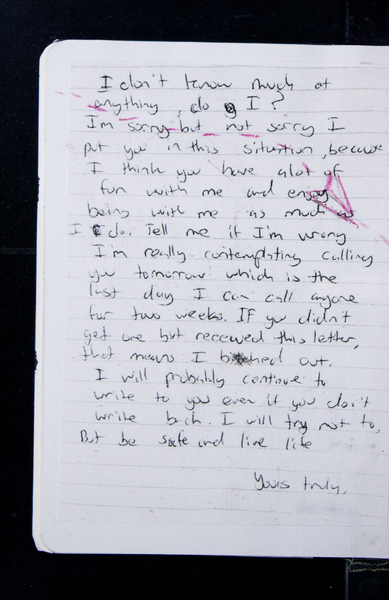 I don't know much at
anything, do I?
I'm sorry but not sorry I
put you in this situation, because
I think you have alot of
fun with me and enjoy
being with me as much as
I do. Tell me if I'm wrong
I'm really contemplating calling
you tomorrow which is the
last day I can call anyone
for two weeks. If you didn't
get one but received this letter,
that means I out.
I will probably continue to
write to you even if you don't
write back. I will try not to,
But be safe and live life
Yours truly,